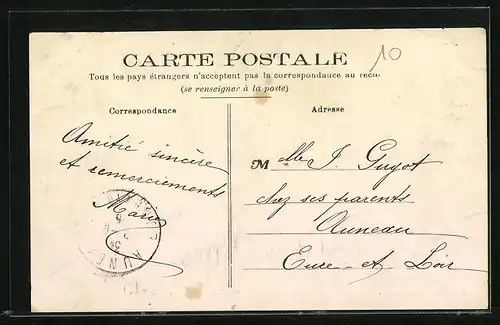 CARTE POSTALE
10
Tous les pays étrangers n'acceptent pas la correspondance au recto
(se renseigner à la poste)
Correspondance
Adresse
Amitié sincère
et remerciements
Marie
Melle J. Guyot
chez ses parents
Auneau
Eure-et-Loir
AUNE